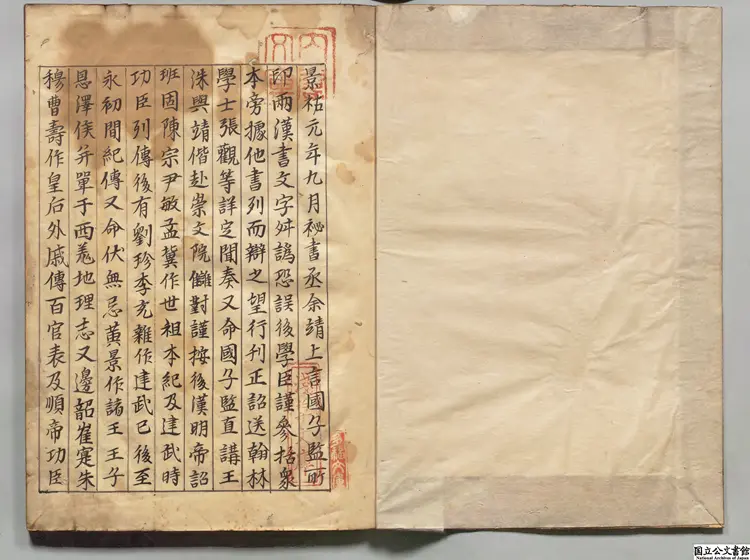 景祐元年九月祕書丞余靖上言國子監所
印兩漢書文字舛譌恐誤後學臣謹參括衆
本旁據他書列而辯之望行刊正詔送翰林
學士張觀等詳定聞奏又命國子監直講王
洙與靖偕赴崇文院讎對謹按後漢明帝詔
班固陳宗尹敏孟冀作世祖本紀及建武時
功臣列傳後有劉珍李充雜作建武已後至
永初間紀傳又命伏無忌黃景作諸王王子
恩澤侯并單于西羌地理志又邊韶崔寔朱
穆曹壽作皇后外戚傳百官表及順帝功臣
国立公文書館
National Archives of Japan